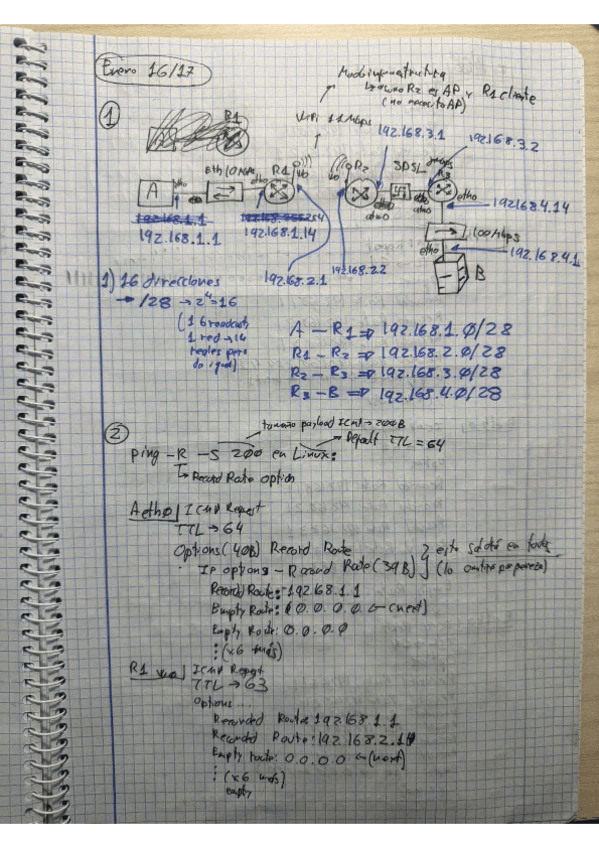 Enero 16/17
Modo infraestructura
como R2 es AP y R1 cliente
(no necesito AP)
1
R1
WiFi 11 Mbps
192.168.3.1
192.168.3.2
A
eth0
Eth 10 Mbps
eth0
R1
R2
SDSL
R3
eth0
192.168.4.14
192.168.1.1
192.168.1.1
192.168.1.14
atm0
atm0
100Mbps
eth0
192.168.4.1
B
192.168.2.1
192.168.2.2
1) 16 direcciones
→ /28 → 2^4=16
(1 broadcast
1 red → 14
reales pero
da igual)
A — R1 ⇒ 192.168.1.0/28
R1 — R2 ⇒ 192.168.2.0/28
R2 — R3 ⇒ 192.168.3.0/28
R3 — B ⇒ 192.168.4.0/28
2
tamaño payload ICMP → 200B
ping -R -s 200 en Linux:
→ Default TTL = 64
↳ Record Route option
A eth0 ICMP Request
TTL → 64
Options (40B) Record Route
IP options - Record Route (39B)
esto saldrá en todos
(lo omitiré por pereza)
Record Route: 192.68.1.1
Empty Route: 0.0.0.0 ← (next)
Empty Route: 0.0.0.0
⋮ (x6 más)
R1 ICMP Request
TTL → 63
Options...
Recorded Route: 192.168.1.1
Recorded Route: 192.168.2.1
Empty route: 0.0.0.0 ← (next)
⋮ (x6 más)
empty